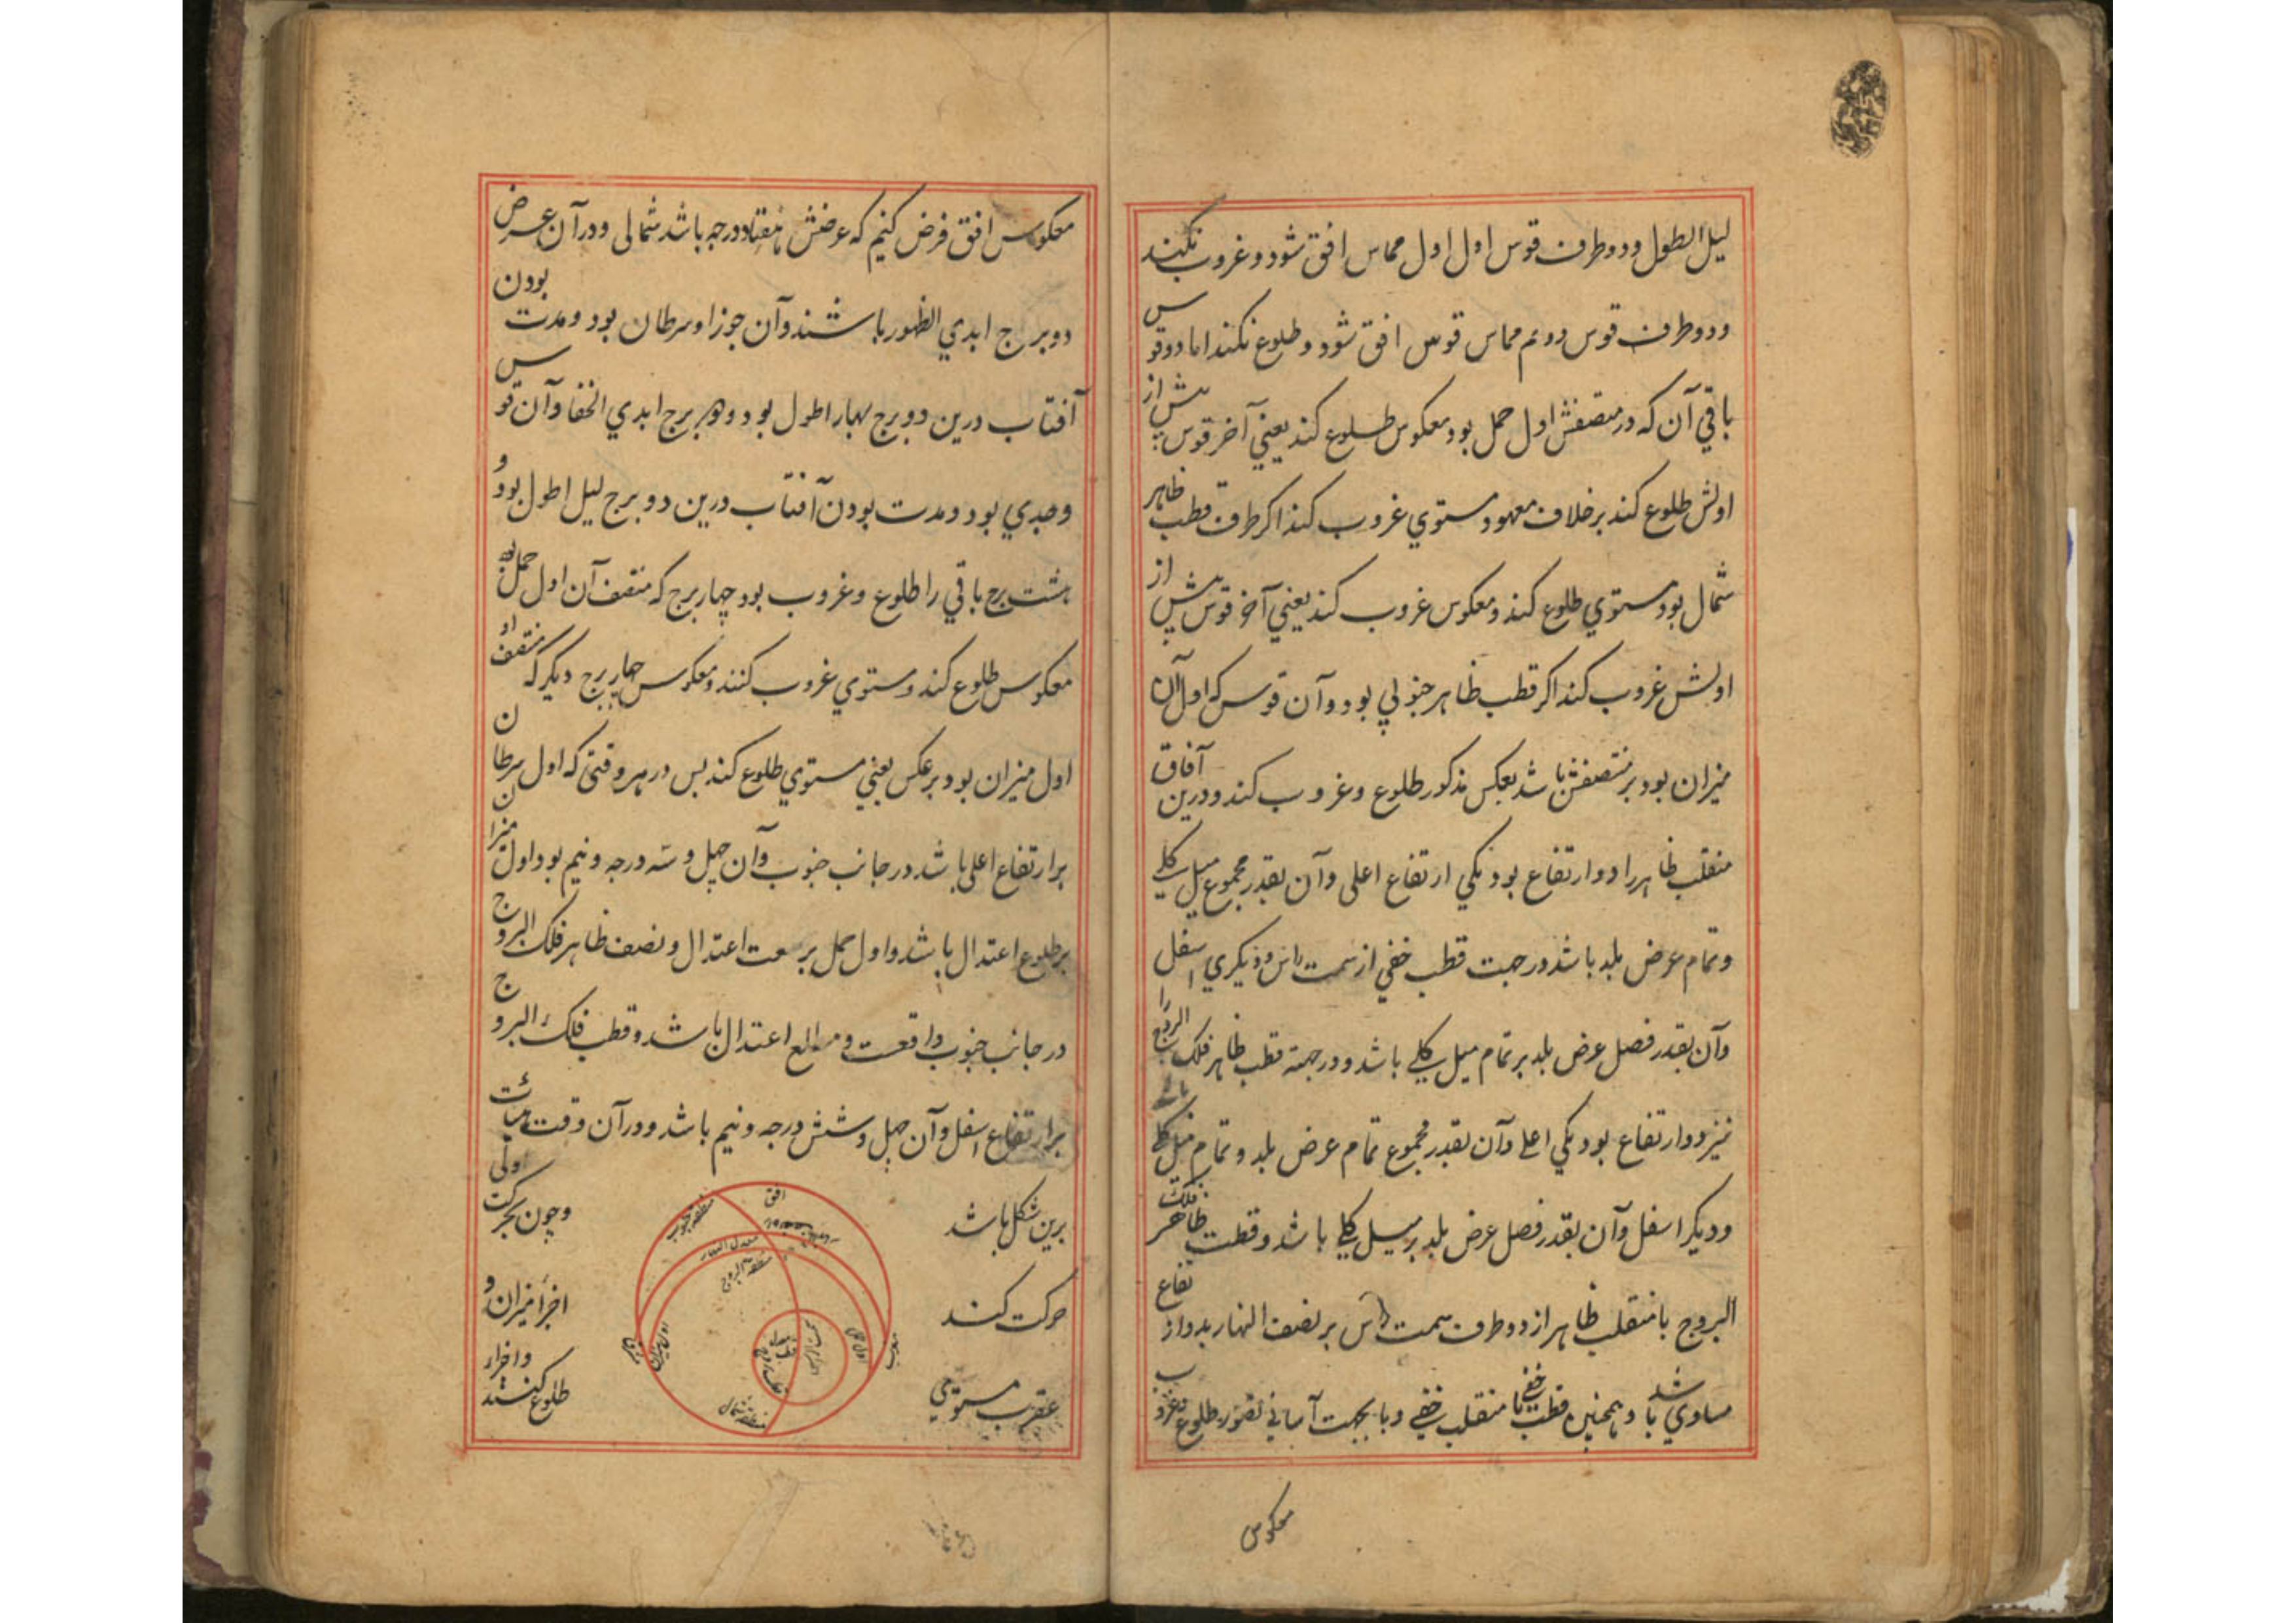 لیل اطول و دو طرف قوس اول اول مماس افق شود و غروب نکند
و دو طرف قوس دویم مماس قوس افق شود و طلوع نکند اما دو قوس
باقي آن که در منتصفش اول حمل بود معکوس طلوع کند یعني آخر قوس پیش از
اولش طلوع کند بر خلاف معهود و مستوي غروب کند اکر طرف قطب ظاهر
شمال بود مستوي طلوع کند و معکوس غروب کند یعني آخر قوس پیش از
اولش غروب کند اکر قطب ظاهر جنوبي بود و آن قوس که اول آن
میزان بود بر منتصفش باشد بعکس مذکور طلوع و غروب کند و درین آفاق
منقلب ظاهر را دو ارتفاع بود یکي ارتفاع اعلی و آن بقدر مجموع میل کلي
و تمام عرض بلد باشد در جهت قطب خفي از سمت راس و دیکري اسفل
و آن بقدر فصل عرض بلد بر تمام میل کلي باشد و در جهة قطب ظاهر فلک البروج را
نیز دو ارتفاع بود یکي اعلی و آن بقدر مجموع تمام عرض بلد و تمام میل کلي
و دیکر اسفل و آن بقدر فصل عرض بلد بر میل کلي باشد و قطب ظاهر فلک
البروج با منقلب ظاهر از دو طرف سمت راس بر نصف النهار بدو ارتفاع
مساوي باشد و همچنین قطب خفي با منقلب خفي و بجهت آساني تصور طلوع و غروب
معکوس
معکوس افق فرض کنیم که عرضش هفتاد درجه باشد شمالي و در آن عرض
دو برج ابدي الظهور باشند و آن جوزا و سرطان بود و مدت بودن
آفتاب درین دو برج نهار اطول بود و دو برج ابدي الخفا و آن قوس
و جدي بود و مدت بودن آفتاب درین دو برج لیل اطول بود و
هشت برج باقي را طلوع و غروب بود چهار برج که منتصف آن اول حمل بود
معکوس طلوع کند و مستوي غروب کنند و معکوس چهار برج دیکر که منتصف او
اول میزان بود بر عکس یعني مستوي طلوع کند پس در هر وقتي که اول سرطان
بر ارتفاع اعلی باشد در جانب جنوب و آن چهل و سه درجه و نیم بود اول میزان
بر طلوع اعتدال باشد و اول حمل بر سعت اعتدال و نصف ظاهر فلک البروج
در جانب جنوب واقعست و مطالع اعتدال باشد و قطب فلک البروج
بر ارتفاع اسفل و آن چهل و شش درجه و نیم باشد و در آن وقت هیأت
برین شکل باشد و چون بحرکت اولی
حرکت کند اجزا میزان و
عقرب مستوي و اجزا طلوع کنند
افق
نقطه جنوب
معدل النهار
منطقه البروج
اول حمل
مغرب
سمت الراس
قطب معدل
قطب بروج
اول میزان
مشرق
نقطه شمال